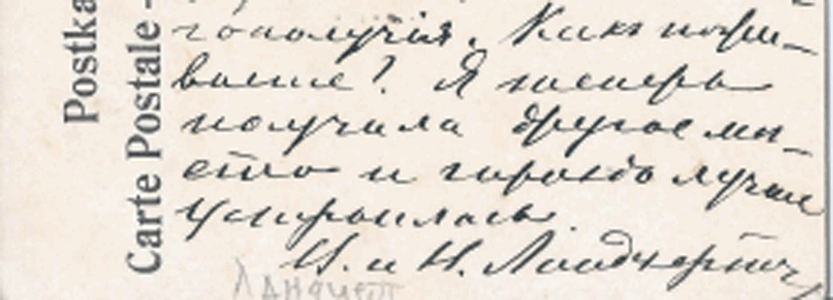 Postka
Carte Postale -
гополучія. Какъ пожи-
ваете? Я теперь
получила другое мѣ-
сто и гораздо лучше
устроилась.
И. и Н.